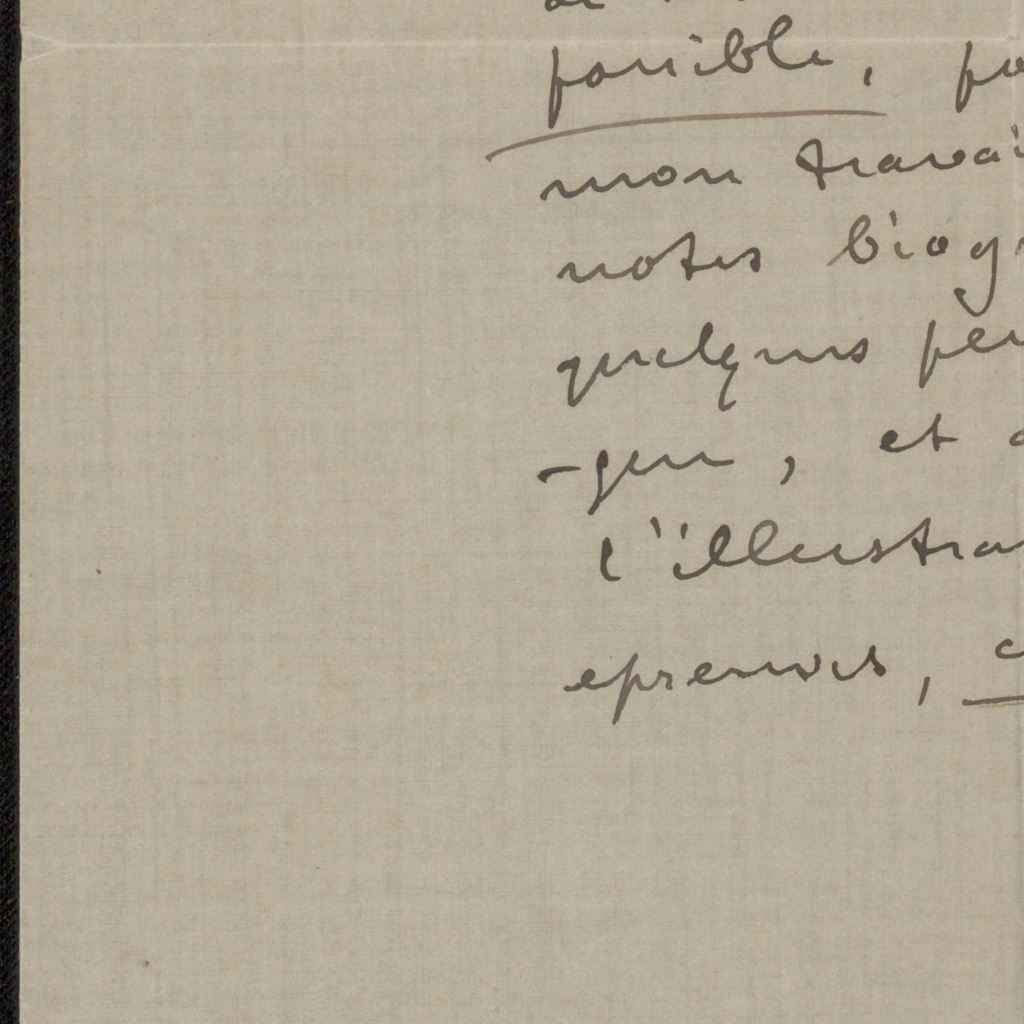 possible, po
mon travai
notes biogr
quelques pen
-gen, et
l'illustra
epreuves, c